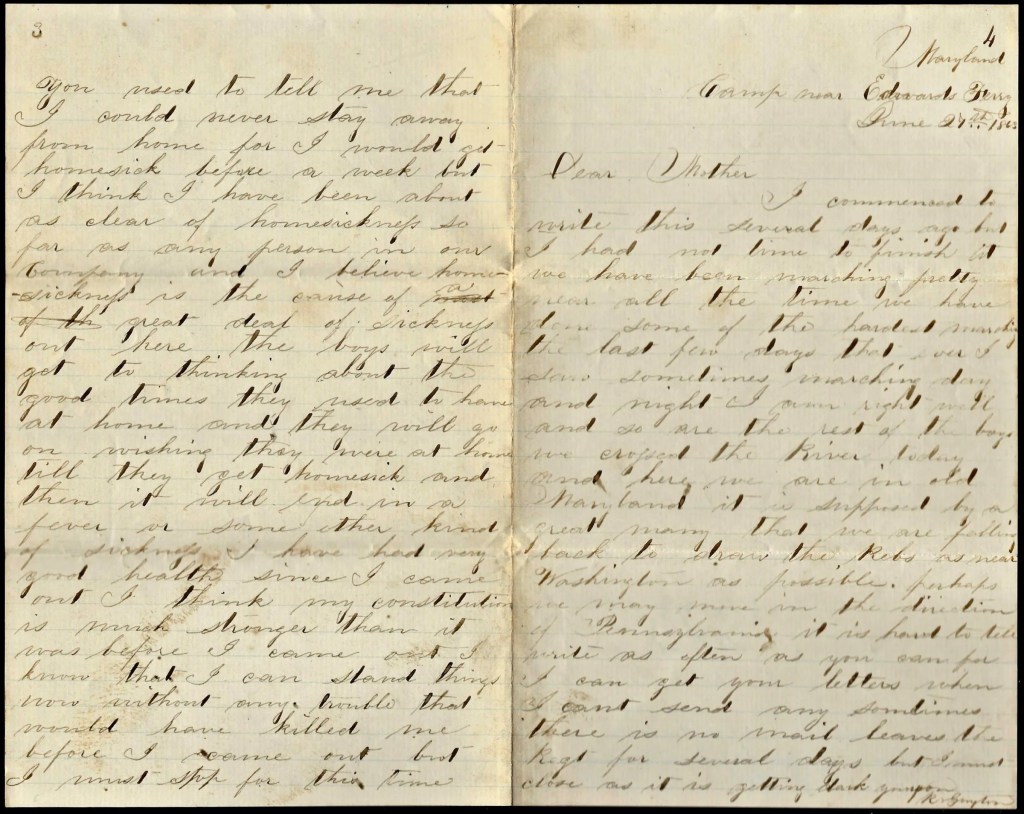 3
You used to tell me that
I could never stay away
from home for I would get
homesick before a week but
I think I have been about
as clear of homesickness so
far as any person in our
Company and I believe home-
-sickness is the cause of a
great deal of sickness
out here the boys will
get to thinking about the
good times they used to have
at home and they will go
on wishing they were at home
till they get homesick and
then it will end in a
fever or some other kind
of sickness I have had very
good health since I came
out I think my constitution
is much stronger than it
was before I came out I
know that I can stand things
now without any trouble that
would have killed me
before I came out but
I must stop for this time
4
Maryland
Camp near Edwards Ferry
June 27th 1863
Dear Mother
I commenced to
write this several days ago but
I had not time to finish it
we have been marching pretty
near all the time we have
done some of the hardest marching
the last few days that ever I
saw sometimes marching day
and night I am right well
and so are the rest of the boys
we crossed the River today
and here we are in old
Maryland it is supposed by a
great many that we are falling
back to draw the Rebs as near
Washington as possible. perhaps
we may move in the direction
of Pennsylvania. it is hard to tell
write as often as you can for
I can get your letters when
I cant send any sometimes
there is no mail leaves the
Regt for several days but I must
close as it is getting dark your son